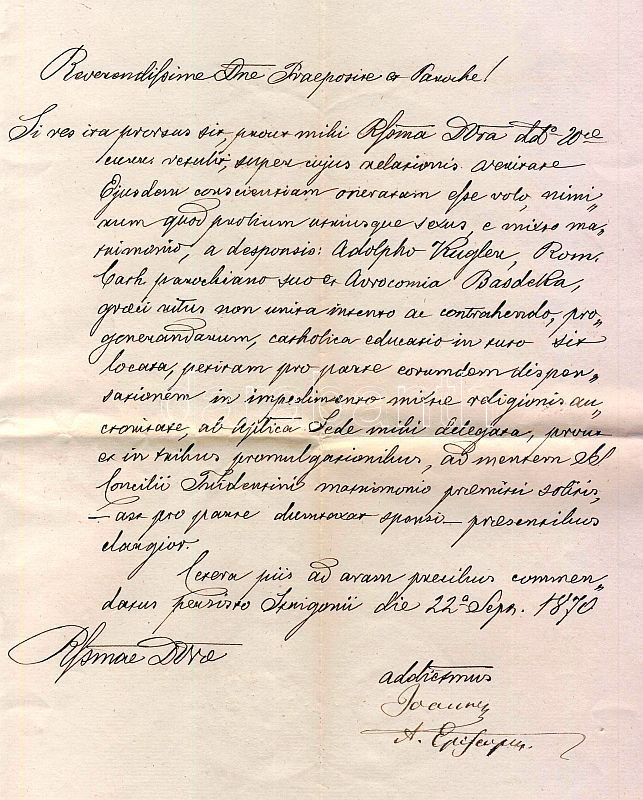 Reverendissime Dne Praeposite et Paroche!
Si res ita prorsus sit, prout mihi Rssma Dtra ddto 20ae
currus retulit, super cujus relationis veritate
Ejusdem conscientiam oneratam esse volo, nimi„
rum quod prolium utriusque sexus, e mixto ma„
trimonio, a desponsis: Adolpho Kugler, Rom.
Cath. parochiano suo et Avrocomia Basdeka,
graeci ritus non unita intento ac contrahendo, pro„
generandarum, catholica educatio in tuto sit
locata, petitam pro parte eorumdem dispen„
sationem in impedimento mixtae religionis au„
ctoritate, ab Aptlica Sede mihi delegata, prout
et in tribus promulgationibus, ad mentem SS
Concilii Tridentini matrimonio praemitti solitis,
– ast pro parte dumtaxat sponsi – praesentibus
elargior.
Cetera piis ad aram precibus commen„
datus persisto Strigonii die 22a Sept. 1870
Rssmae Dtrae
addictmus
Joannes
A. Episcopus.